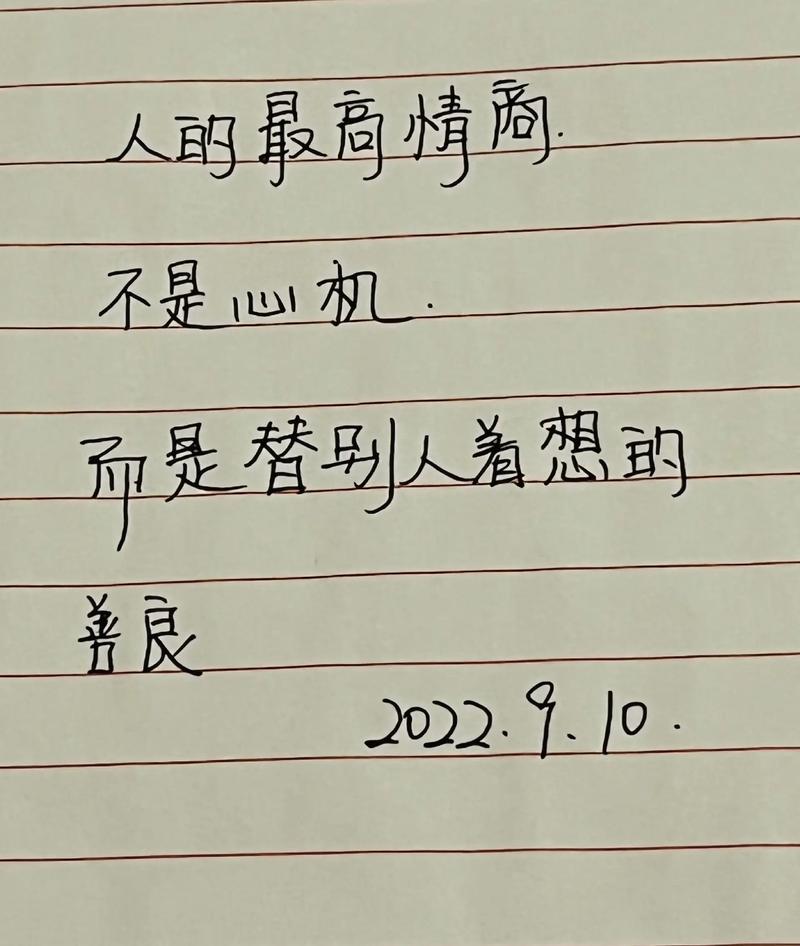 人的最高情商.
不是心机.
而是替别人着想的
善良
2022.9.10.